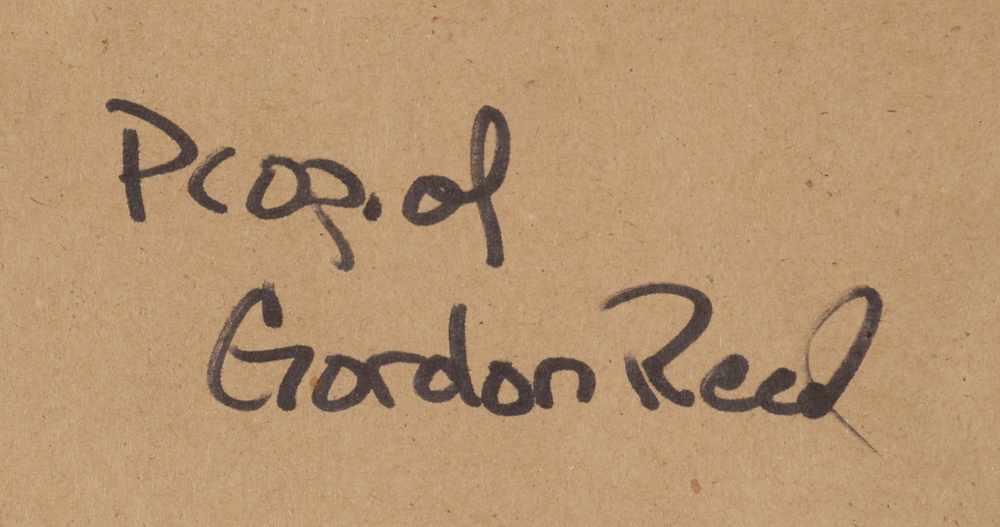 Prop. of
Gordon Reed